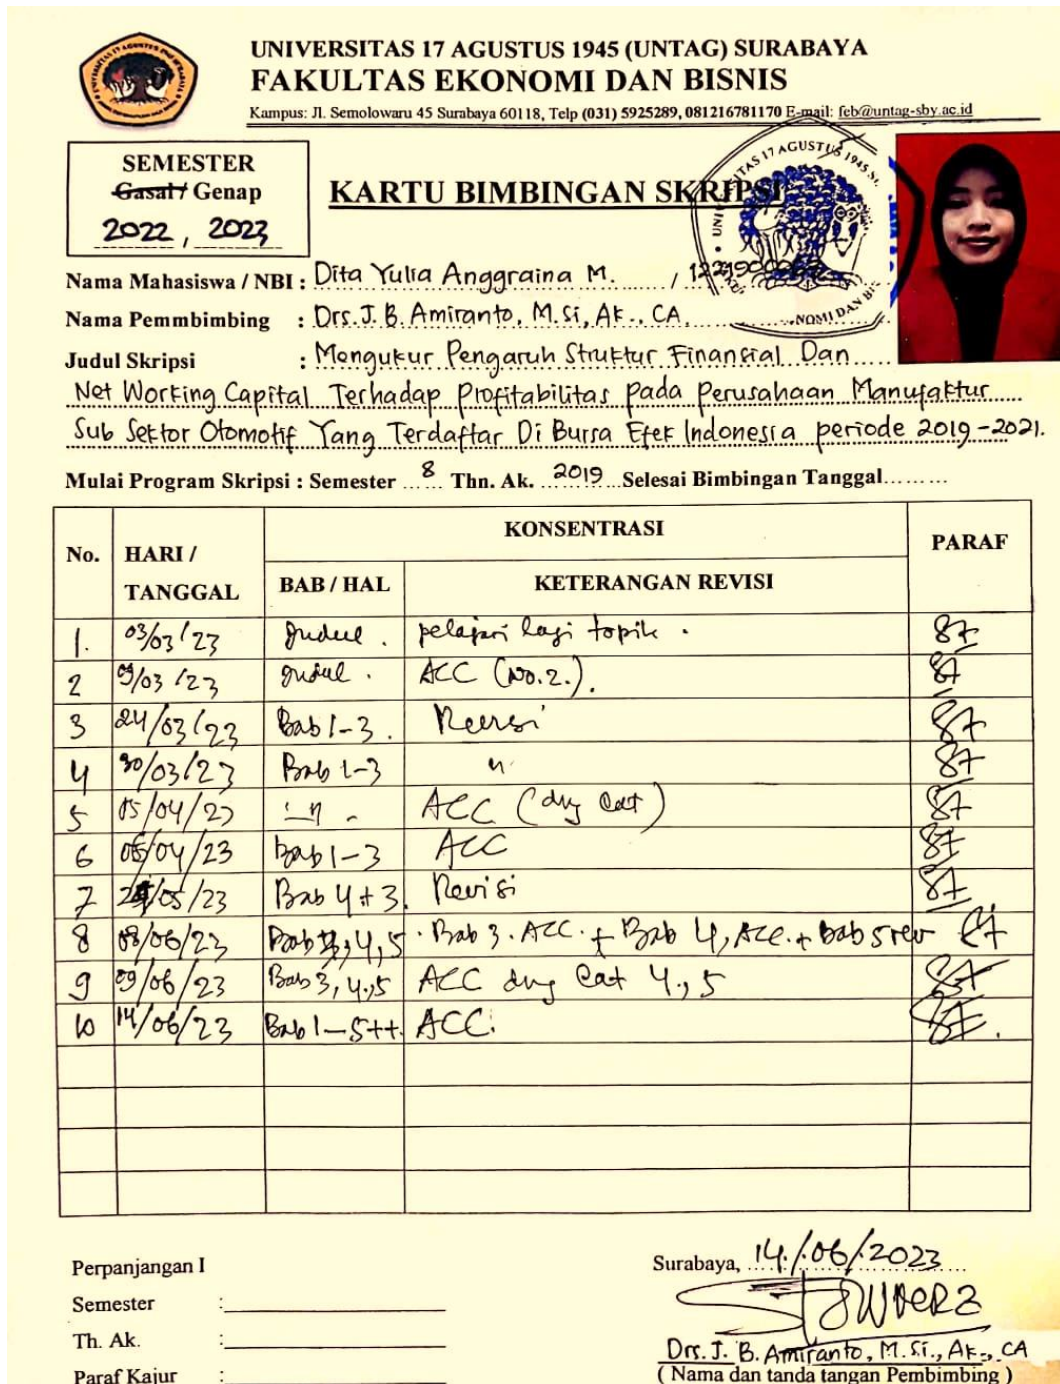 UNIVERSITAS 17 AGUSTUS 1945 (UNTAG) SURABAYA
FAKULTAS EKONOMI DAN BISNIS
Kampus: Jl. Semolowaru 45 Surabaya 60118, Telp (031) 5925289, 081216781170 E-mail: feb@untag-sby.ac.id
SEMESTER
Gasal / Genap
2022, 2023
KARTU BIMBINGAN SKRIPSI
Nama Mahasiswa / NBI : Dita Yulia Anggraina M. /
Nama Pemmbimbing : Drs. J. B. Amiranto, M.Si, Ak., CA.
Judul Skripsi : Mengukur Pengaruh Struktur Finansial Dan
Net Working Capital Terhadap Profitabilitas pada Perusahaan Manufaktur
Sub Sektor Otomotif Yang Terdaftar Di Bursa Efek Indonesia periode 2019-2021.
Mulai Program Skripsi : Semester 8 Thn. Ak. 2019 Selesai Bimbingan Tanggal
No. HARI / TANGGAL KONSENTRASI PARAF
BAB / HAL KETERANGAN REVISI
1. 03/03/23 Judul. pelajari lagi topik.
2 09/03/23 Judul. ACC (No.2.).
3 24/03/23 Bab 1-3. Revisi
4 30/03/23 Bab 1-3 "
5 05/04/23 - " - ACC (dng Cat)
6 06/04/23 Bab 1-3 ACC
7 /05/23 Bab 4+3. Revisi
8 08/06/23 Bab 3, 4, 5. Bab 3. ACC. + Bab 4, ACC. + bab 5 rev
9 09/06/23 Bab 3, 4, 5 ACC dng Cat 4, 5
10 14/06/23 Bab 1-5++. ACC.
Perpanjangan I
Semester :
Th. Ak. :
Paraf Kajur :
Surabaya, 14/06/2023
Drs. J. B. Amiranto, M.Si., Ak., CA
( Nama dan tanda tangan Pembimbing )